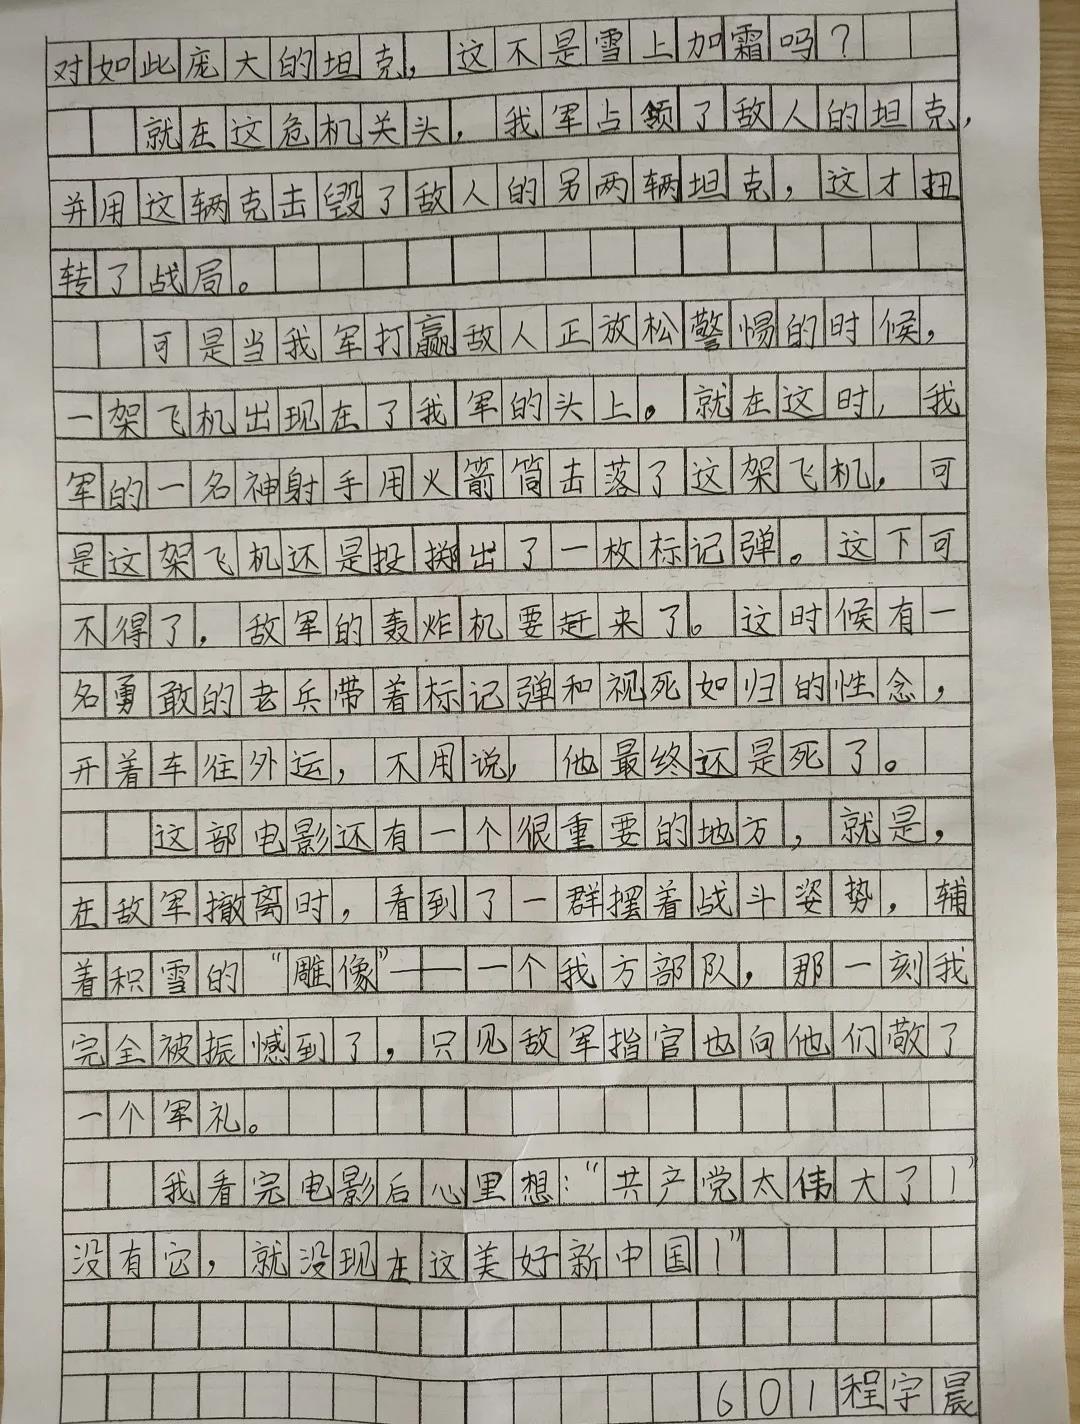 对如此庞大的坦克，这不是雪上加霜吗？
就在这危机关头，我军占领了敌人的坦克，
并用这辆克击毁了敌人的另两辆坦克，这才扭
转了战局。
可是当我军打赢敌人正放松警惕的时候，
一架飞机出现在了我军的头上。就在这时，我
军的一名神射手用火箭筒击落了这架飞机，可
是这架飞机还是投掷出了一枚标记弹。这下可
不得了，敌军的轰炸机要赶来了。这时候有一
名勇敢的老兵带着标记弹和视死如归的性念，
开着车往外运，不用说，他最终还是死了。
这部电影还有一个很重要的地方，就是，
在敌军撤离时，看到了一群摆着战斗姿势，辅
着积雪的“雕像”——一个我方部队，那一刻我
完全被振憾到了，只见敌军指官也向他们敬了
一个军礼。
我看完电影后心里想：“共产党太伟大了！”
没有它，就没现在这美好新中国！”
601程宇晨